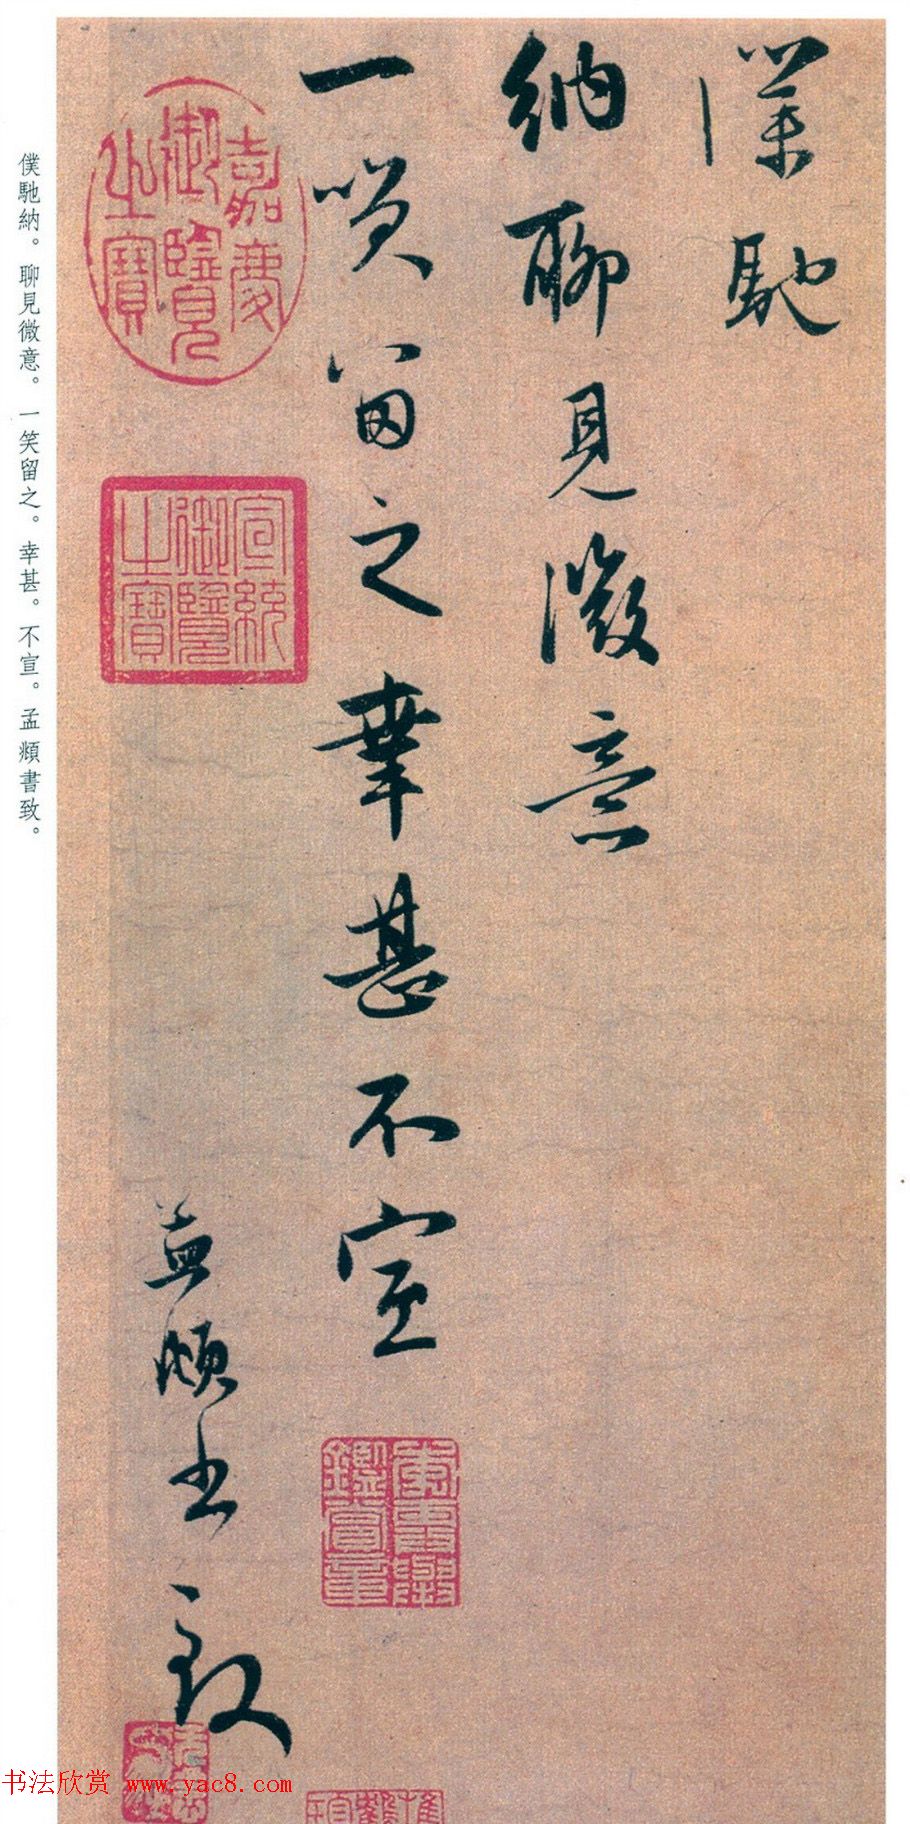 僕馳
納聊見微意
一笑留之幸甚不宣
孟頫書致
嘉慶御覽之寶
宣統御覽之寶
僕馳納。聊見微意。一笑留之。幸甚。不宣。孟頫書致。
书法欣赏 www.yac8.com